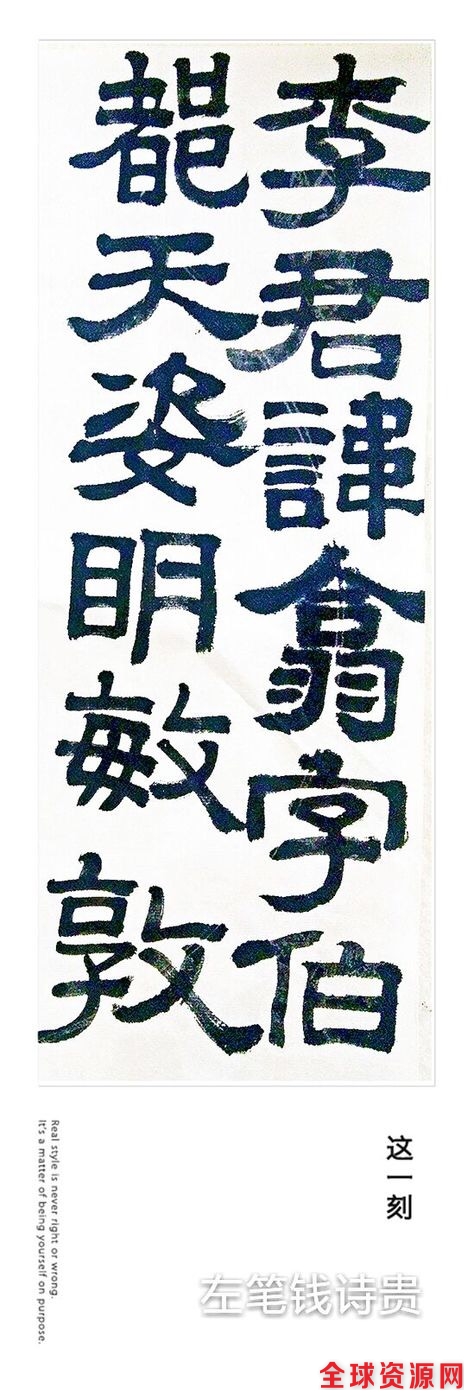 李君諱翕字伯
都天姿眀敏敦
这一刻
Real style is never right or wrong.
It's a matter of being yourself on purpose.
左笔钱诗贵
全球资源网